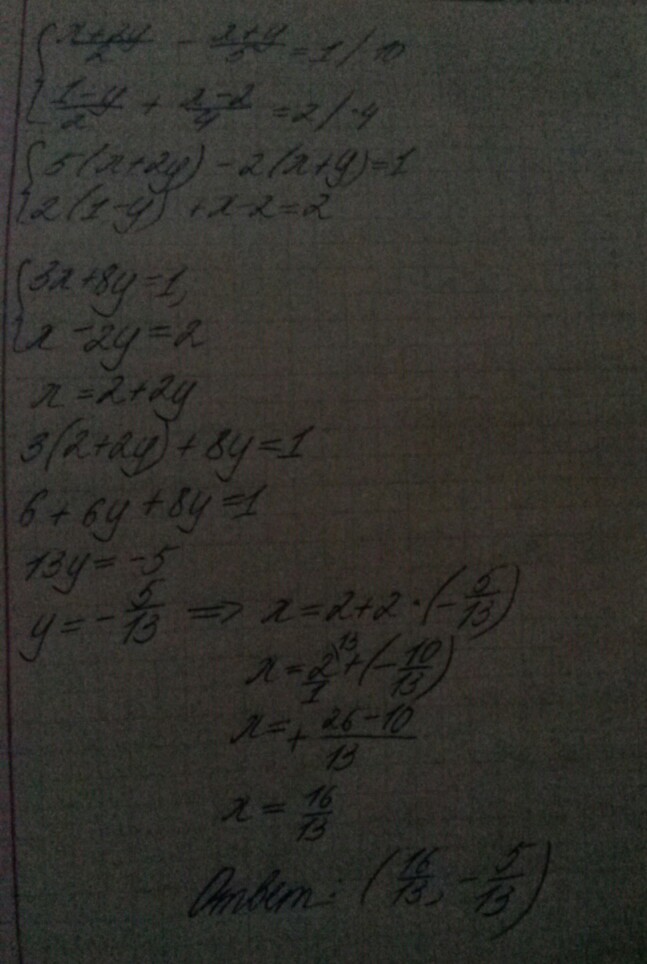 { (x+2y)/2 - (x+y)/5 = 1 / 10
(1-y)/2 + (x-2)/4 = 2 / ·4
{ 5(x+2y) - 2(x+y)=1
2(1-y) + x-2=2
{ 3x+8y=1,
x-2y=2
x=2+2y
3(2+2y)+8y=1
6+6y+8y=1
13y=-5
y=-5/13 => x=2+2·(-5/13)
x=2/1 13 +(-10/13)
x=+ (26-10)/13
x=16/13
Ответ: (16/13, -5/13)